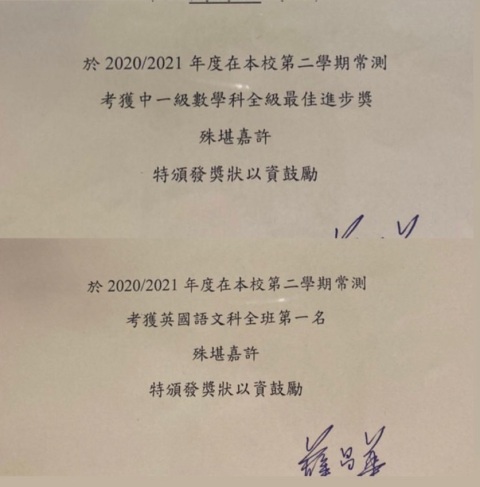 於 2020/2021 年度在本校第二學期常測
考獲中一級數學科全級最佳進步獎
殊堪嘉許
特頒發獎狀以資鼓勵
於 2020/2021 年度在本校第二學期常測
考獲英國語文科全班第一名
殊堪嘉許
特頒發獎狀以資鼓勵